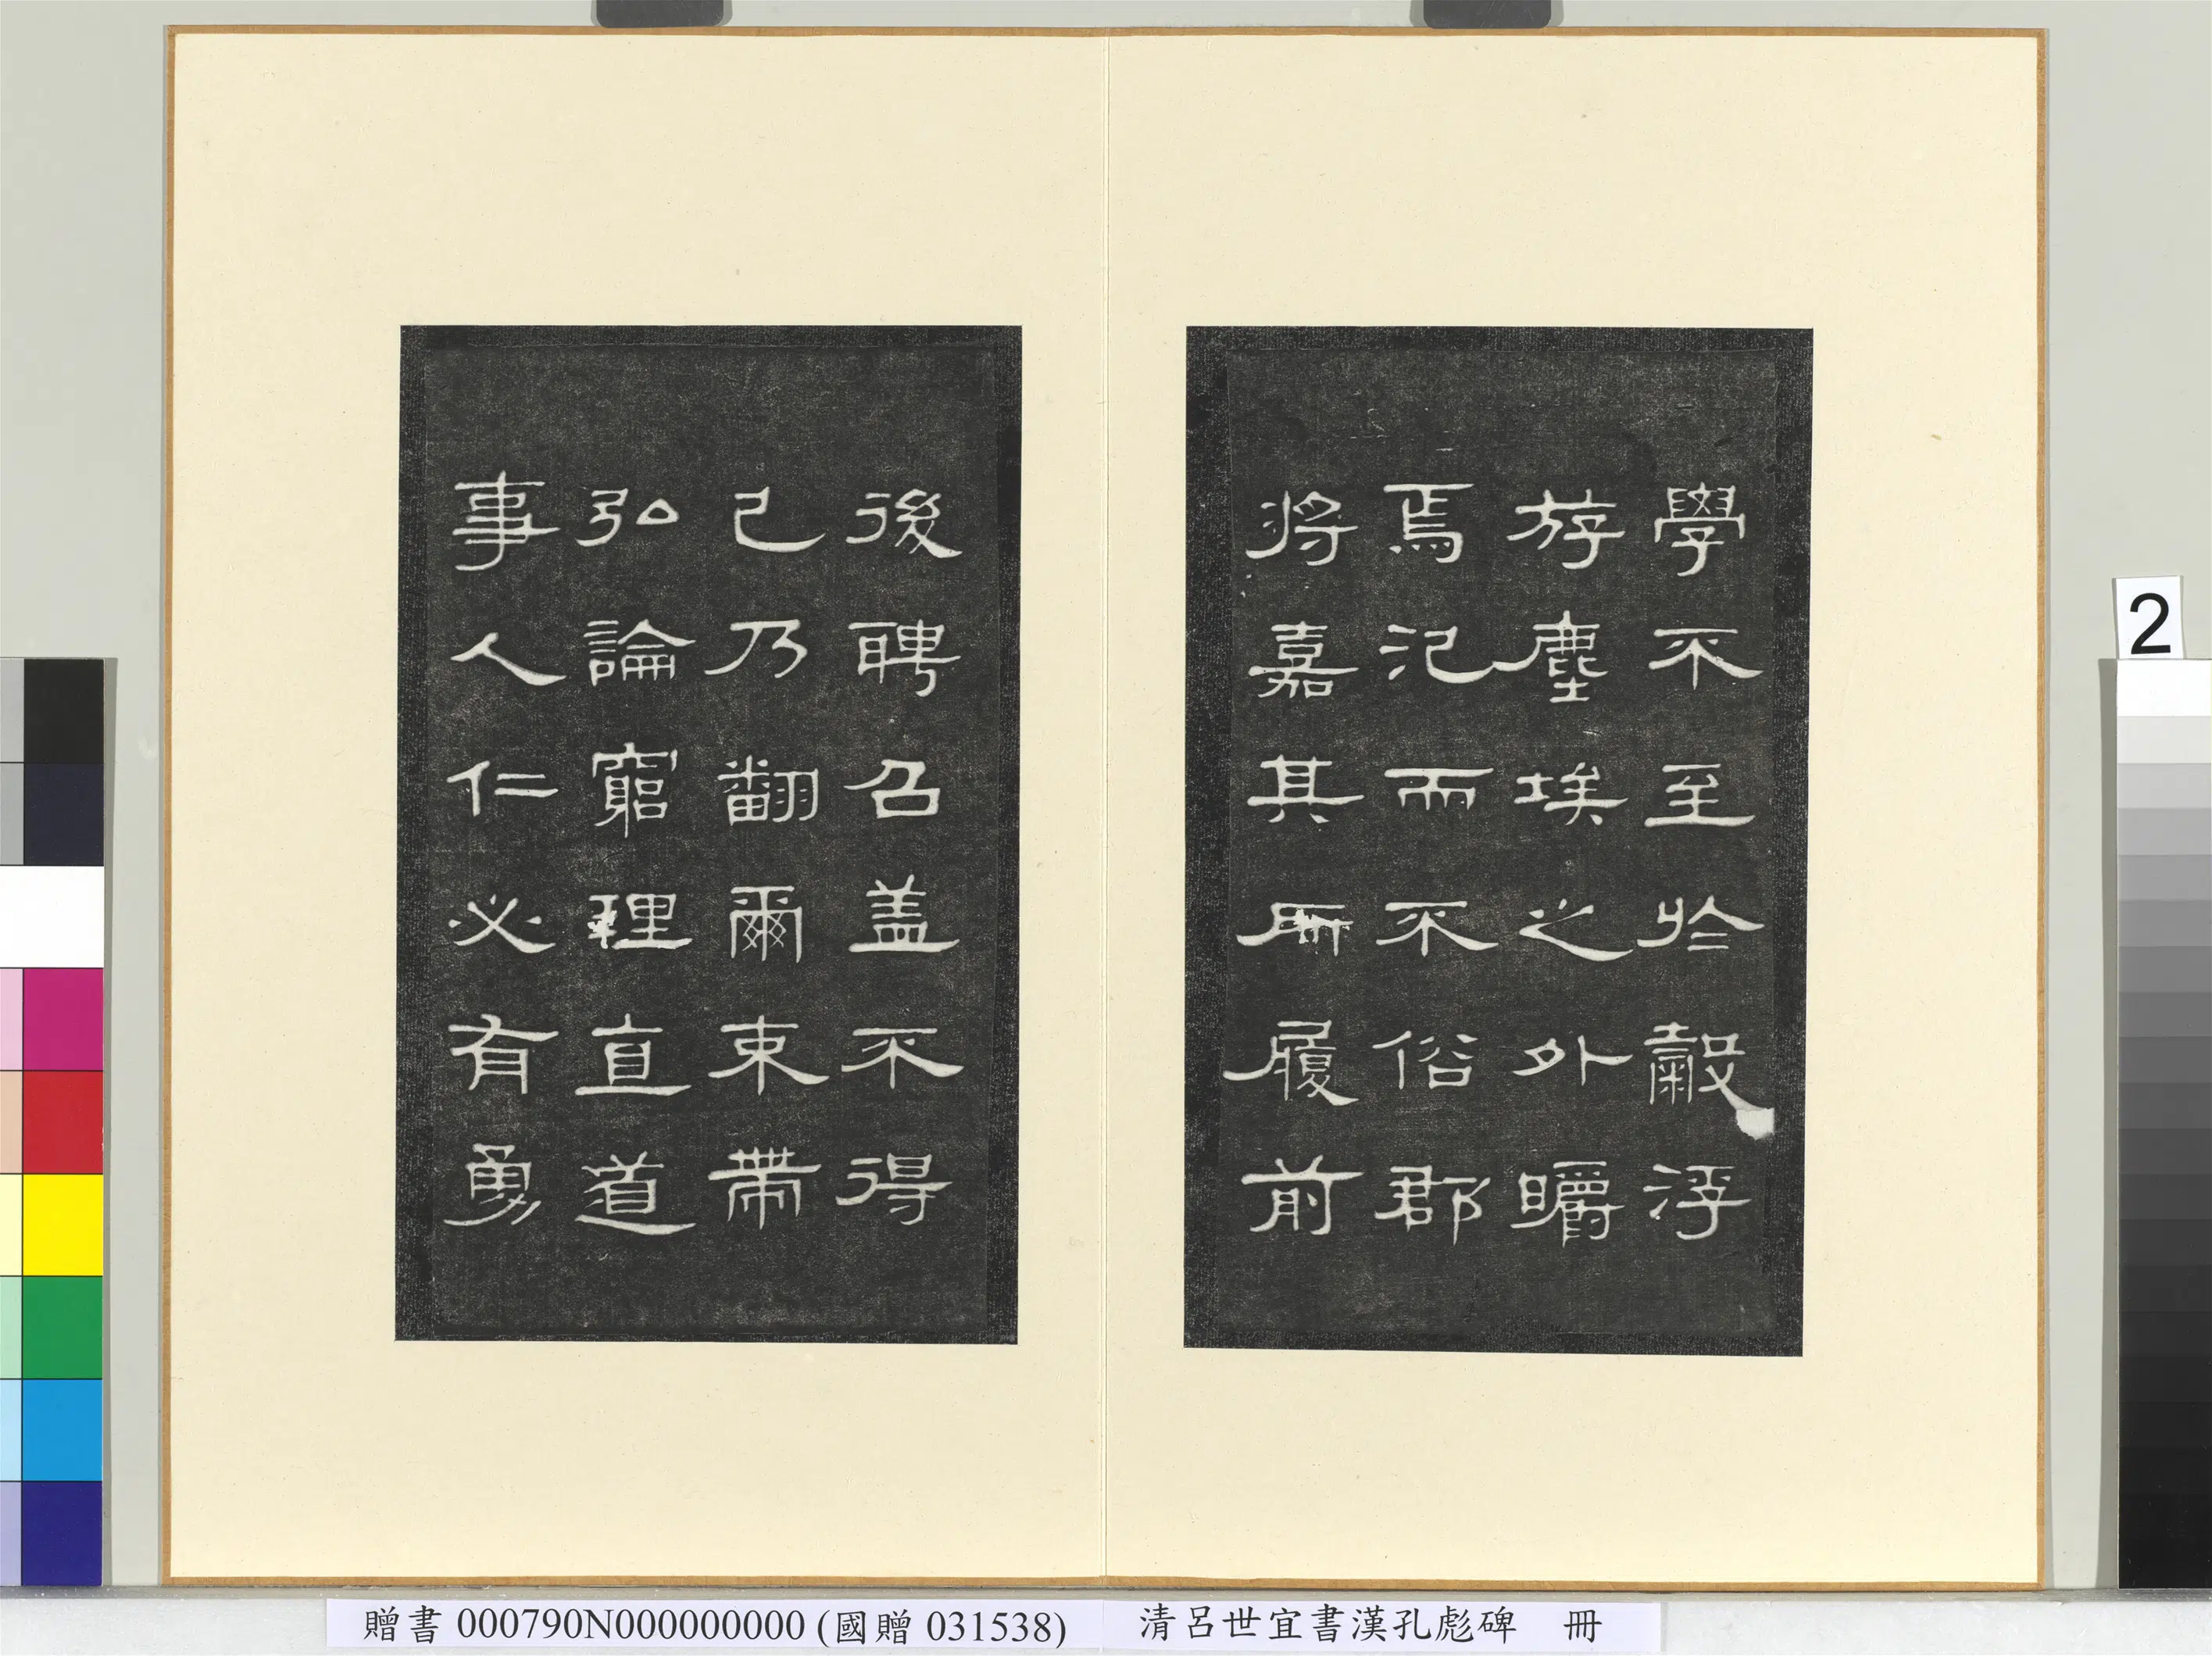 學不至於穀浮
斿塵埃之外皭
焉汜而不俗郡
將嘉其所履前
後聘召盖不得
已乃翻爾束帶
弘論窮理直道
事人仁必有勇
2
贈書 000790N000000000 (國贈 031538) 清呂世宜書漢孔彪碑 冊